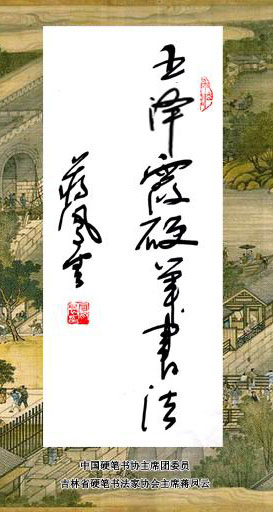 王泽霞硬笔书法
蒋凤云
中国硬笔书协主席团委员
吉林省硬笔书法家协会主席蒋凤云